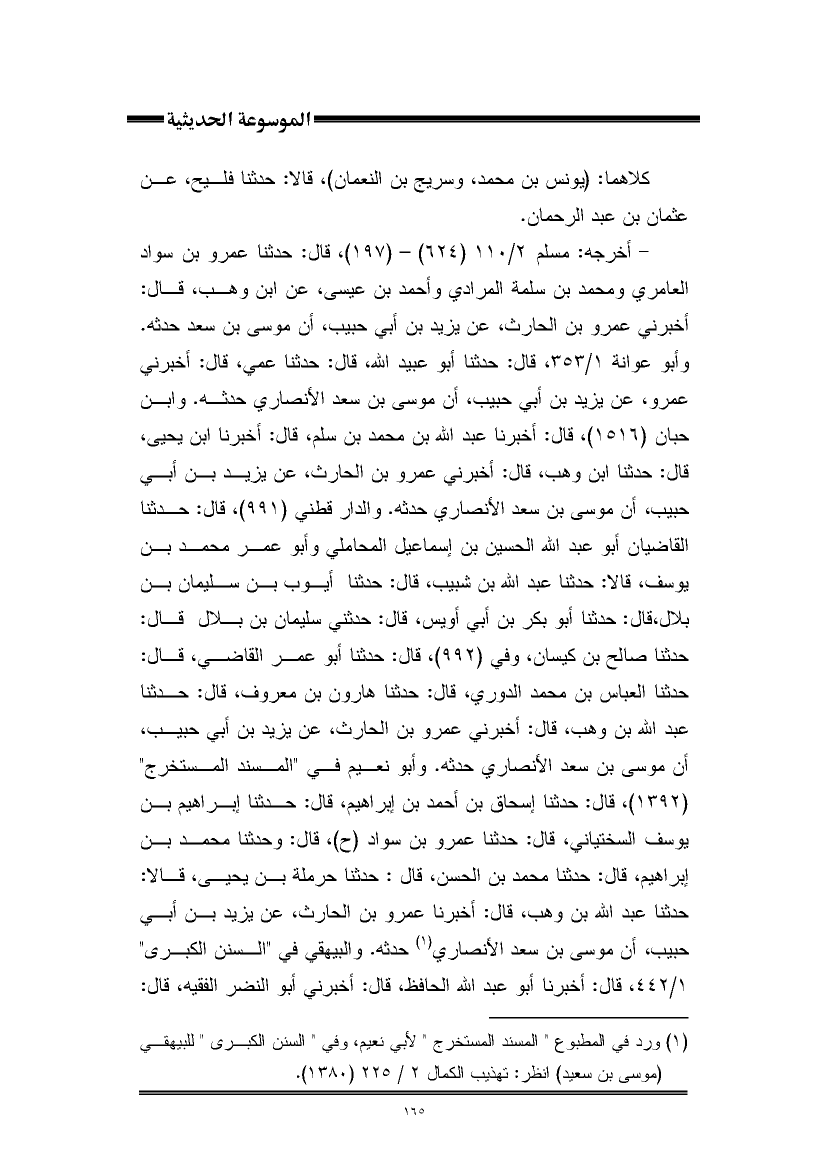 الموسوعة الحديثية
كلاهما: (يونس بن محمد، وسريج بن النعمان)، قالا: حدثنا فليح، عن
عثمان بن عبد الرحمان.
- أخرجه: مسلم ٢/١١٠ (٦٢٤) - (١٩٧)، قال: حدثنا عمرو بن سواد
العامري ومحمد بن سلمة المرادي وأحمد بن عيسى، عن ابن وهب، قال:
أخبرني عمرو بن الحارث، عن يزيد بن أبي حبيب، أن موسى بن سعد حدثه.
وأبو عوانة ١/٣٥٣، قال: حدثنا أبو عبيد الله، قال: حدثنا عمي، قال: أخبرني
عمرو، عن يزيد بن أبي حبيب، أن موسى بن سعد الأنصاري حدثه. وابن
حبان (١٥١٦)، قال: أخبرنا عبد الله بن محمد بن سلم، قال: أخبرنا ابن يحيى،
قال: حدثنا ابن وهب، قال: أخبرني عمرو بن الحارث، عن يزيد بن أبي
حبيب، أن موسى بن سعد الأنصاري حدثه. والدار قطني (٩٩١)، قال: حدثنا
القاضيان أبو عبد الله الحسين بن إسماعيل المحاملي وأبو عمر محمد بن
يوسف، قالا: حدثنا عبد الله بن شبيب، قال: حدثنا أيوب بن سليمان بن
بلال،قال: حدثنا أبو بكر بن أبي أويس، قال: حدثني سليمان بن بلال قال:
حدثنا صالح بن كيسان، وفي (٩٩٢)، قال: حدثنا أبو عمر القاضي، قال:
حدثنا العباس بن محمد الدوري، قال: حدثنا هارون بن معروف، قال: حدثنا
عبد الله بن وهب، قال: أخبرني عمرو بن الحارث، عن يزيد بن أبي حبيب،
أن موسى بن سعد الأنصاري حدثه. وأبو نعيم في "المسند المستخرج"
(١٣٩٢)، قال: حدثنا إسحاق بن أحمد بن إبراهيم، قال: حدثنا إبراهيم بن
يوسف السختياني، قال: حدثنا عمرو بن سواد (ح)، قال: وحدثنا محمد بن
إبراهيم، قال: حدثنا محمد بن الحسن، قال : حدثنا حرملة بن يحيى، قالا:
حدثنا عبد الله بن وهب، قال: أخبرنا عمرو بن الحارث، عن يزيد بن أبي
حبيب، أن موسى بن سعد الأنصاري(١) حدثه. والبيهقي في "السنن الكبرى"
١/٤٤٢، قال: أخبرنا أبو عبد الله الحافظ، قال: أخبرني أبو النضر الفقيه، قال:
(١) ورد في المطبوع " المسند المستخرج " لأبي نعيم، وفي " السنن الكبرى " للبيهقي
(موسى بن سعيد) انظر: تهذيب الكمال ٢ / ٢٢٥ (١٣٨٠).
١٦٥